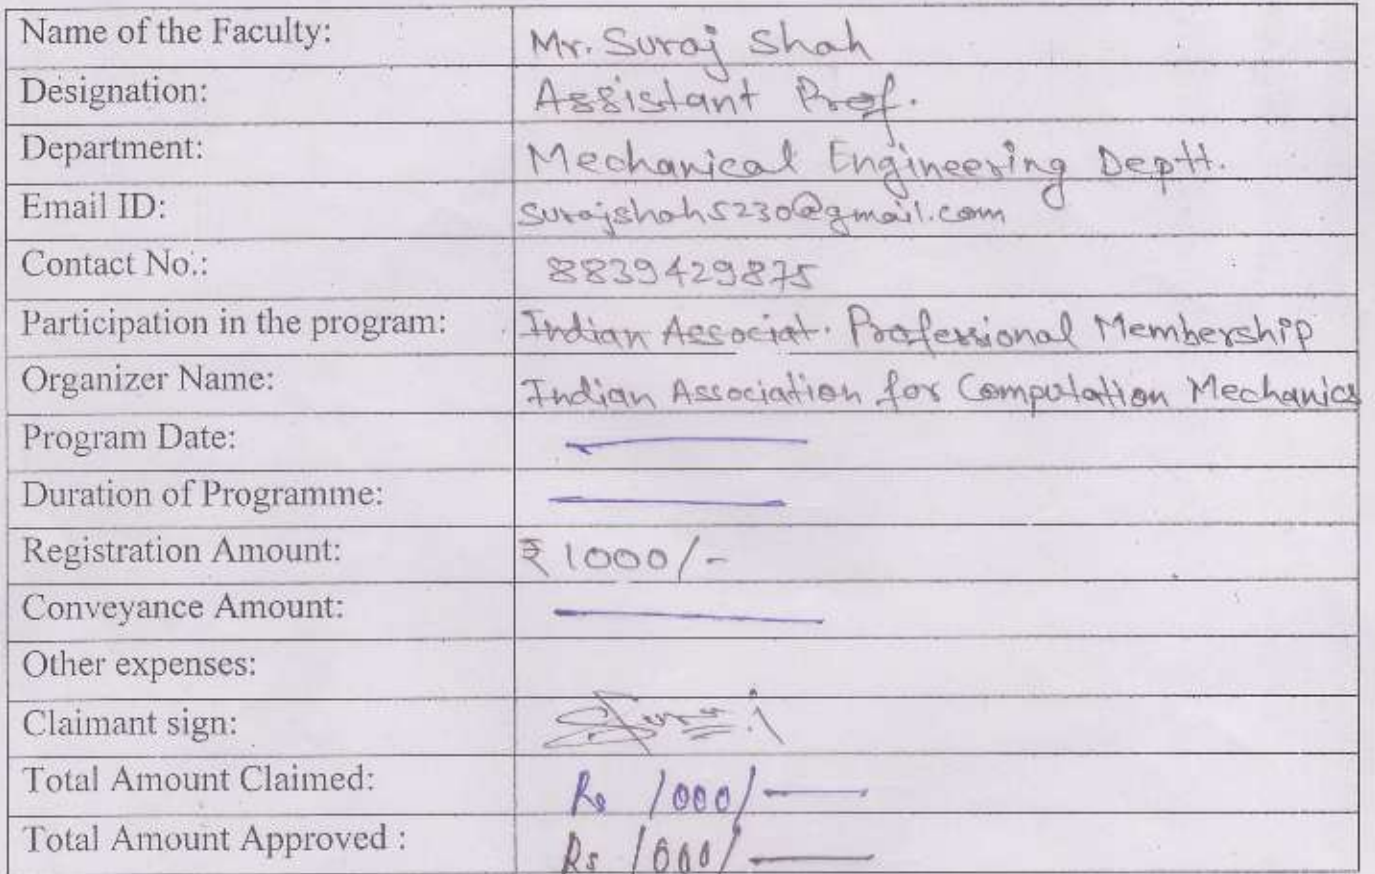 Name of the Faculty: Mr. Suraj Shah
Designation: Assistant Prof.
Department: Mechanical Engineering Deptt.
Email ID: surajshah5230@gmail.com
Contact No.: 8839429875
Participation in the program: Indian Associat. Professional Membership
Organizer Name: Indian Association for Computation Mechanics
Program Date:
Duration of Programme:
Registration Amount: ₹ 1000/-
Conveyance Amount:
Other expenses:
Claimant sign: Suraj
Total Amount Claimed: Rs 1000/-
Total Amount Approved : Rs 1000/-